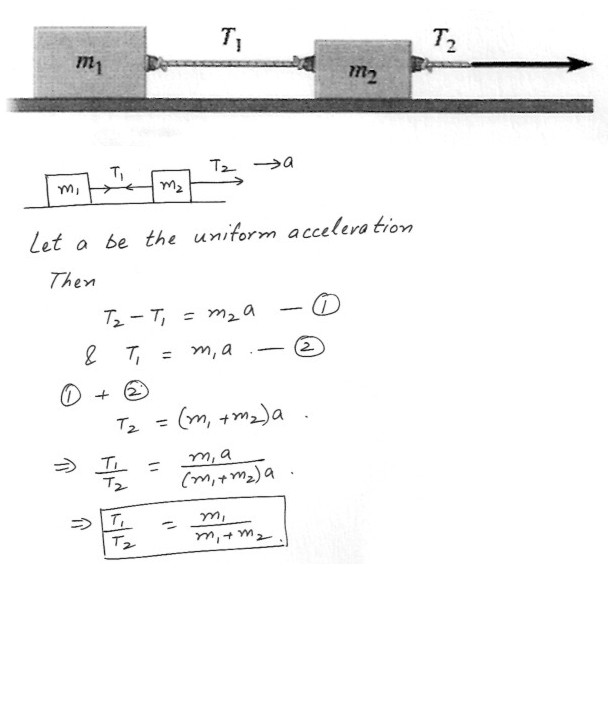 T₁ T₂
m₁ m₂
T₁ T₂ →a
m₁ m₂
Let a be the uniform acceleration
Then
T₂ - T₁ = m₂a — ①
& T₁ = m₁a . — ②
① + ②
T₂ = (m₁ + m₂)a .
⇒ T₁/T₂ = m₁a/(m₁+m₂)a .
⇒ T₁/T₂ = m₁/m₁+m₂ .